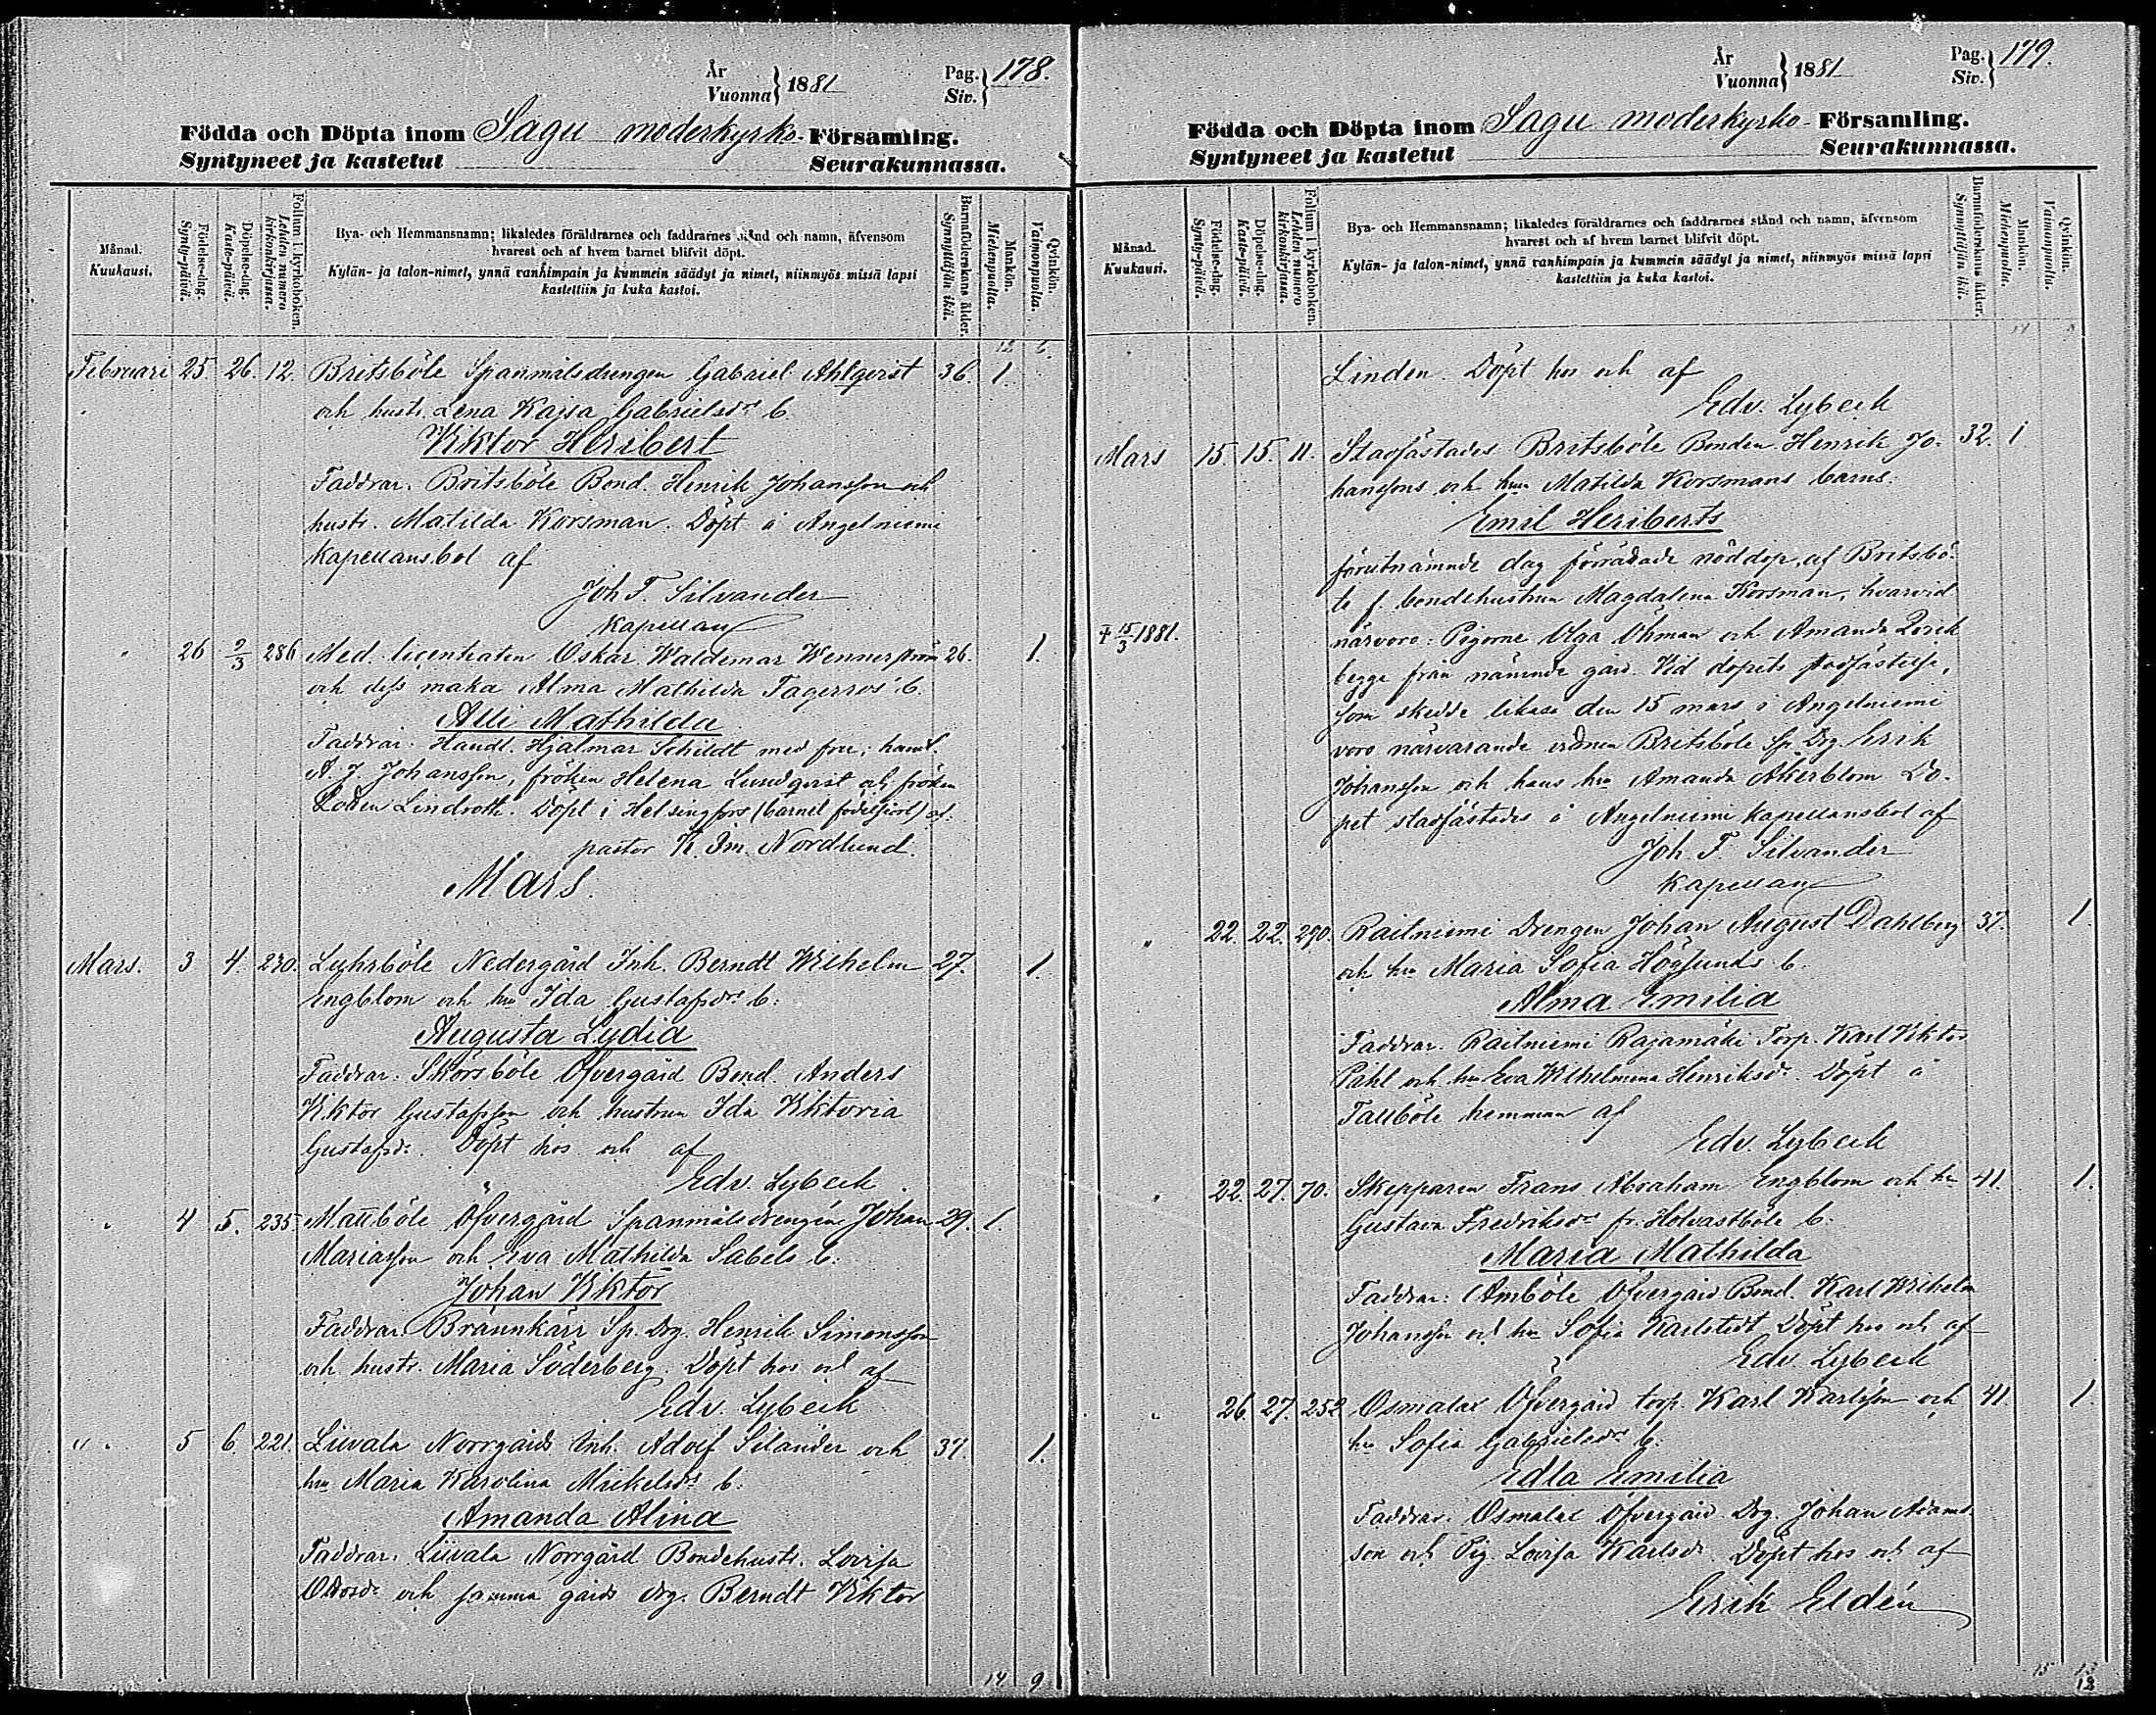 År
Vuonna 1881
Pag.
Siv. 178.
Födda och Döpta inom Sagu moderkyrko- Församling.
Syntyneet ja kastetut Seurakunnassa.
Månad.
Kuukausi.
Födelse-dag.
Synty-päivä.
Döpelse-dag.
Kaste-päivä.
Folium i kyrkoboken.
Lehden numero kirkonkirjassa.
Bya- och Hemmansnamn; likaledes föräldrarnes och faddrarnes stånd och namn, äfvensom
hvarest och af hvem barnet blifvit döpt.
Kylän- ja talon-nimet, ynnä vanhimpain ja kummein säädyt ja nimet, niinmyös missä lapsi
kastettiin ja kuka kastoi.
Barnaföderskans ålder.
Synnyttäjän ikä.
Mankön.
Miehenpuolta.
Qvinkön.
Vaimonpuolta.
12 6.
Februari 25 26. 12 Britsböle Spanmålsdrengen Gabriel Ahlqvist 36. 1.
och hustr. Lena Kajsa Gabrielsdrs b.
Viktor Heribert
Faddrar. Britsböle Bond. Henrik Johansson och
hustr. Matilda Korsman. Döpt å Angelniemi
kapellansbol af
Joh F. Silvander
Kapellan
" 26 2/3 286 Med. licentiaten Oskar Waldemar Wennerström 26. 1.
och dess maka Alma Mathilda Fagerros' b.
Alli Mathilda
Faddrar: Handl. Hjalmar Schildt med fru; handl.
A. J. Johansson, fröken Helena Lundqvist och fröken
Lindroth. Döpt i Helsingfors (barnet födt ) af
pastor K. Im. Nordlund.
Mars.
Mars. 3 4. 230. Lyhrböle Nedergård Inh. Berndt Wilhelm 27. 1.
Engblom och hu Ida Gustafsdrs b:
Augusta Lydia
Faddrar: Skörsböle Öfvergård Bond. Anders
Viktor Gustafsson och hustrun Ida Viktoria
Gustafsdr. Döpt hos och af
Edv. Lybeck
" 4 5. 235. Mattböle Öfvergård Spanmålsdrengen Johan 29. 1.
Mariasson och Eva Mathilda Sabels b:
Johan Viktor
Faddrar: Brännkärr Sp. drg. Henrik Simonsson
och hustr. Maria Söderberg. Döpt hos och af
Edv. Lybeck
" 5 6. 221. Liivala Norrgårds Inh. Adolf Selander och 37. 1.
hu Maria Karolina Mickelsdrs b:
Amanda Alina
Faddrar: Liivala Norrgård Bondehustr. Lovisa
och samma gårds drg. Berndt Viktor
14 9
År
Vuonna 1881
Pag.
Siv. 179.
Födda och Döpta inom Sagu moderkyrko- Församling.
Syntyneet ja kastetut Seurakunnassa.
Månad.
Kuukausi.
Födelse-dag.
Synty-päivä.
Döpelse-dag.
Kaste-päivä.
Folium i kyrkoboken.
Lehden numero kirkonkirjassa.
Bya- och Hemmansnamn; likaledes föräldrarnes och faddrarnes stånd och namn, äfvensom
hvarest och af hvem barnet blifvit döpt.
Kylän- ja talon-nimet, ynnä vanhimpain ja kummein säädyt ja nimet, niinmyös missä lapsi
kastettiin ja kuka kastoi.
Barnaföderskans ålder.
Synnyttäjän ikä.
Mankön.
Miehenpuolta.
Qvinkön.
Vaimonpuolta.
Linden. Döpt hos och af
Edv. Lybeck
Mars 15. 15. 11. Stadfästades Britsböle Bonden Henrik Jo- 32. 1
hanssons och huns Matilda Korsmans barns.
Emil Heriberts
förutnämnde dag förrättade nöddop, af Britsbö-
le f. bondehustrun Magdalena Korsman, hvarvid
‡ 15/3 1881. närvoro: Pigorna Olga Öhman och Amanda
begge från nämnde gård. Vid dopets stadfästelse,
som skedde likaså den 15 mars i Angelniemi
voro närvarande Britsböle Sp. Drg. Erik
Johansson och hans hu Amanda Åkerblom. Do-
pet stadfästades å Angelniemi kapellansbol af
Joh. F. Silvander
Kapellan
" 22. 22. 290. Raitniemi Drengen Johan August Dahlberg 37. 1.
och hu Maria Sofia Höglunds b.
Alma Emilia
Faddrar. Raitniemi Rajamäki Torp. Karl Viktor
Påhl och hu Eva Wilhelmina Henriksdr. Döpt å
Tallböle hemman af
Edv. Lybeck
" 22. 27. 70. Skepparen Frans Abraham Engblom och hu 41. 1.
Gustava Fredriksdrs fr. Holvastböle b.
Maria Mathilda
Faddrar: Amböle Öfvergård Bond. Karl Wilhelm
Johansson och hu Sofia Karlstedt Döpt hos och af
Edv. Lybeck
" 26. 27. 252 Osmalax Öfvergård torp. Karl Karlsson och 41. 1.
hu Sofia Gabrielsdrs b.
Edla Emilia
Faddrar: Osmalax Öfvergård Drg. Johan Adams-
son och Pig. Lovisa Karlsdr. Döpt hos och af
Erik Eldén
15 13
12